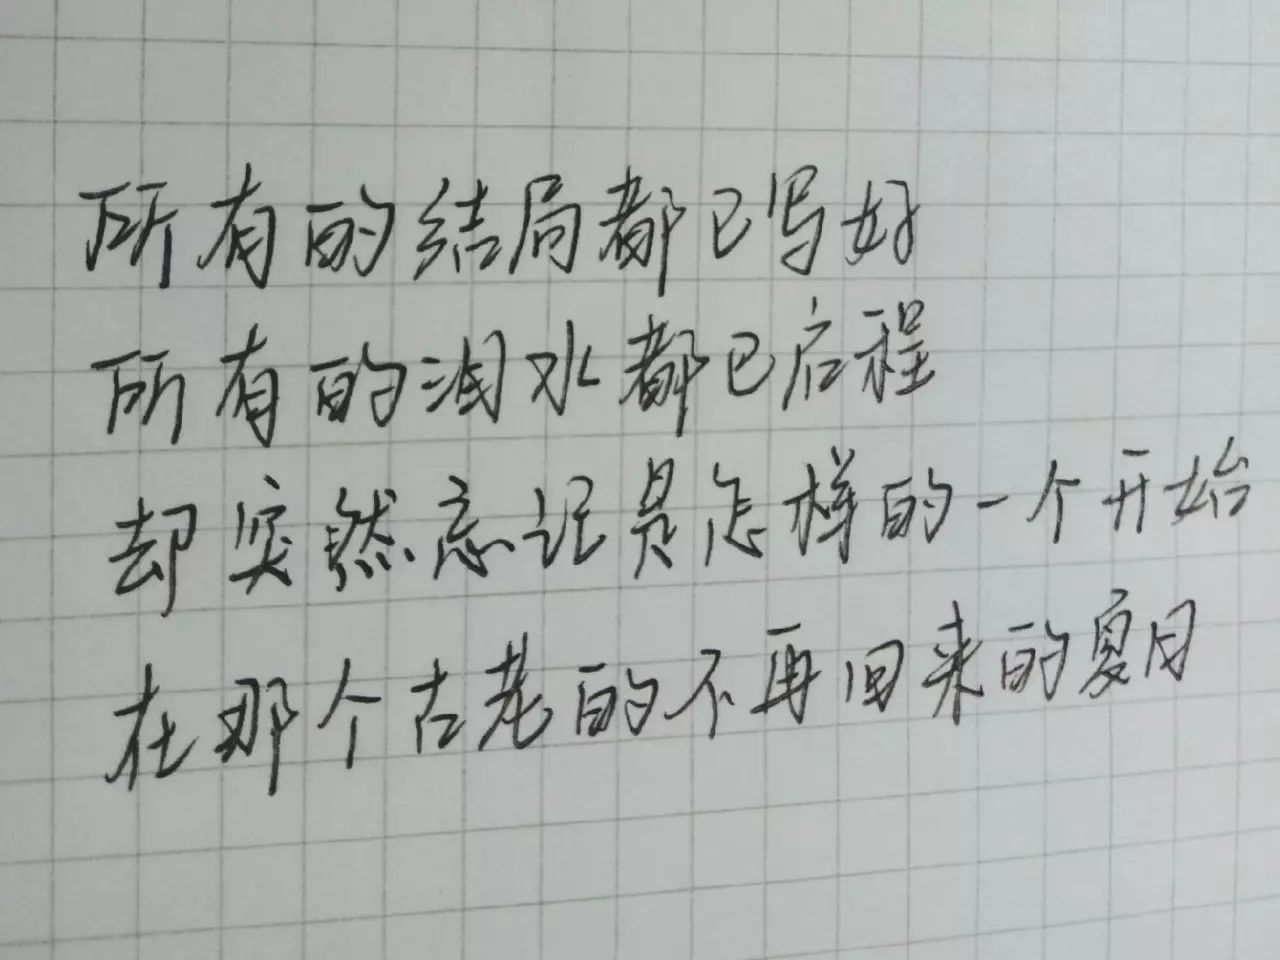 所有的结局都已写好
所有的泪水都已启程
却突然忘记是怎样的一个开始
在那个古老的不再回来的夏日